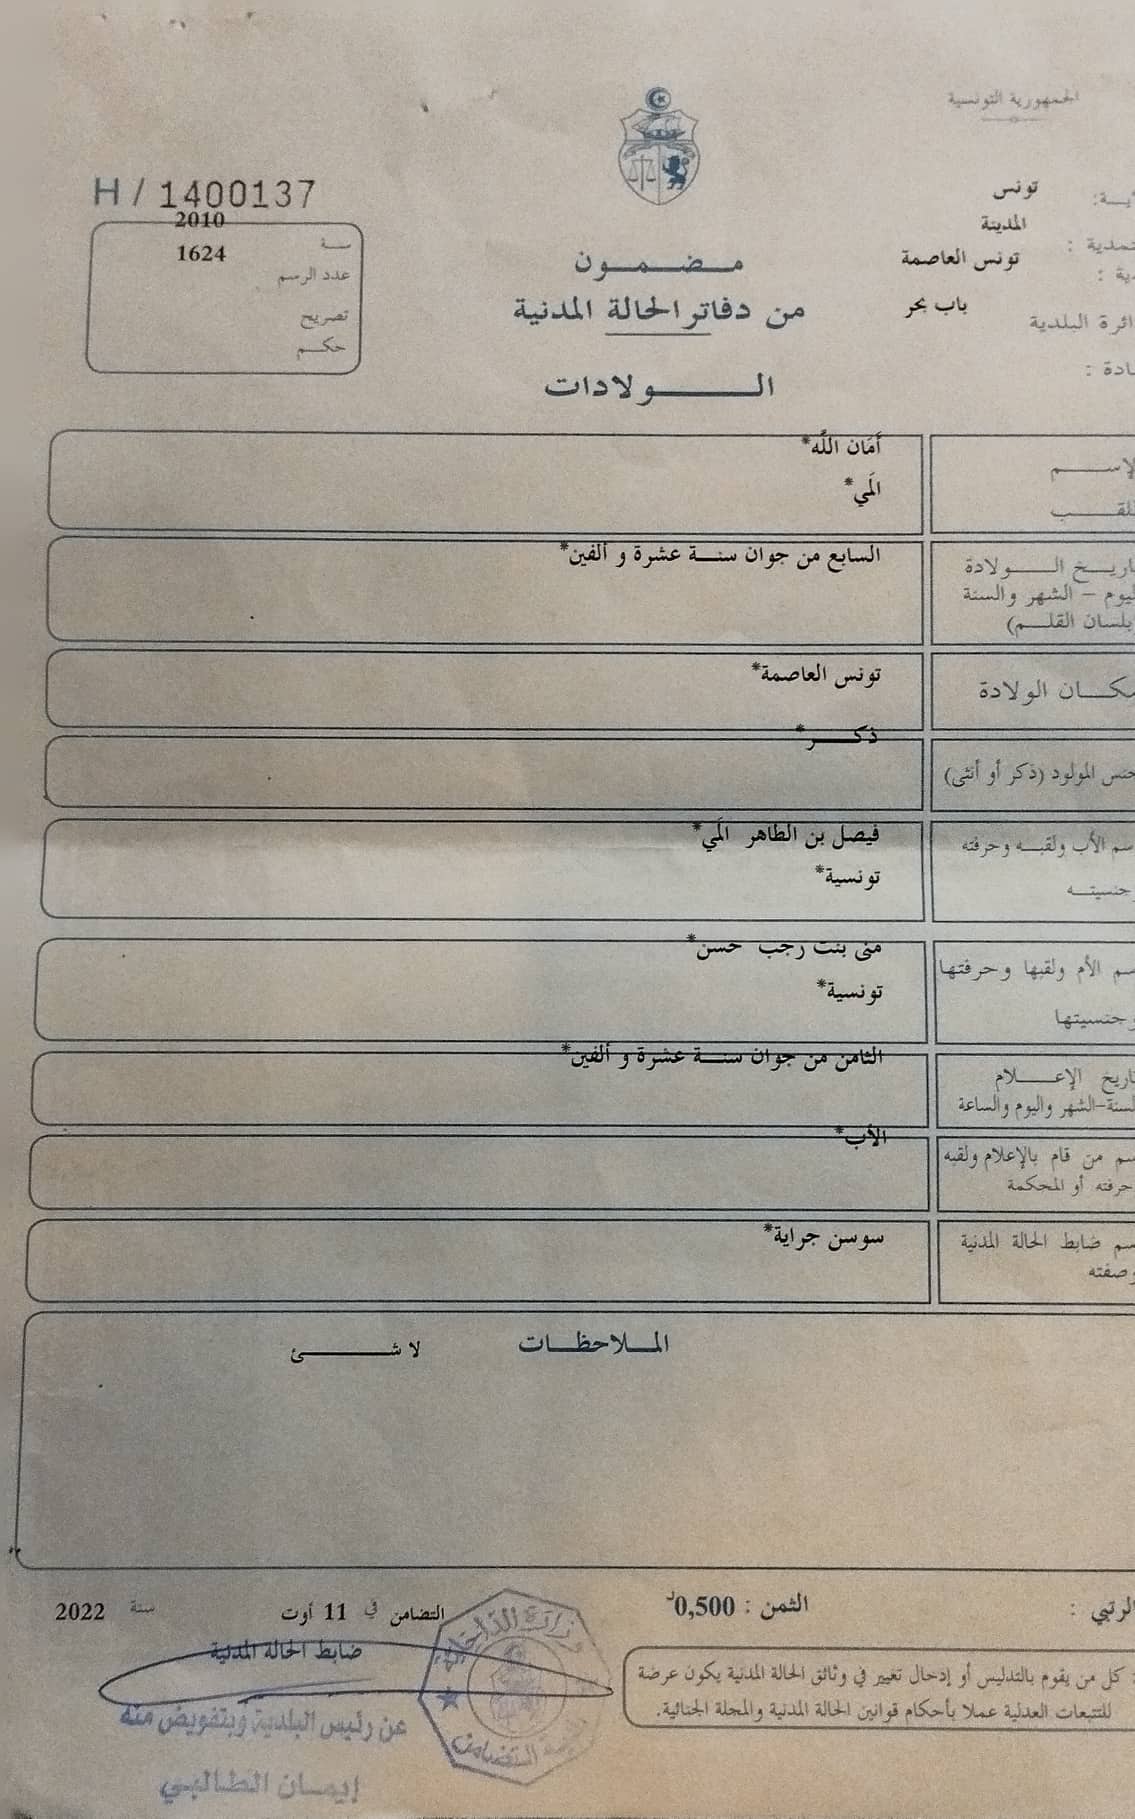 الجمهورية التونسية
تونس
المدينة
تونس العاصمة
باب بحر
H / 1400137
2010
سنة
1624
عدد الرسم
تصريح
حكم
مضمون
من دفاتر الحالة المدنية
الولادات
أمَان اللَّه*
المَي*
السابع من جوان سنة عشرة و ألفين*
تاريخ الولادة
اليوم – الشهر والسنة
(بلسان القلم)
تونس العاصمة*
مكان الولادة
ذكر*
جنس المولود (ذكر أو أنثى)
فيصل بن الطاهر المَي*
اسم الأب ولقبه وحرفته
تونسية*
وجنسيته
منى بنت رجب حسن*
اسم الأم ولقبها وحرفتها
تونسية*
وجنسيتها
الثامن من جوان سنة عشرة و ألفين*
تاريخ الإعلام
السنة-الشهر واليوم والساعة
الأب*
اسم من قام بالإعلام ولقبه
حرفته أو المحكمة
سوسن جراية*
اسم ضابط الحالة المدنية
وصفته
الملاحظات
لا شئ
الثمن : 0,500د
التضامن في 11 أوت سنة 2022
ضابط الحالة المدنية
كل من يقوم بالتدليس أو إدخال تغيير في وثائق الحالة المدنية يكون عرضة
للتتبعات العدلية عملا بأحكام قوانين الحالة المدنية والمجلة الجنائية.
وزارة الداخلية
التضامن
عن رئيس البلدية وبتفويض منه
إيمان الطالبي